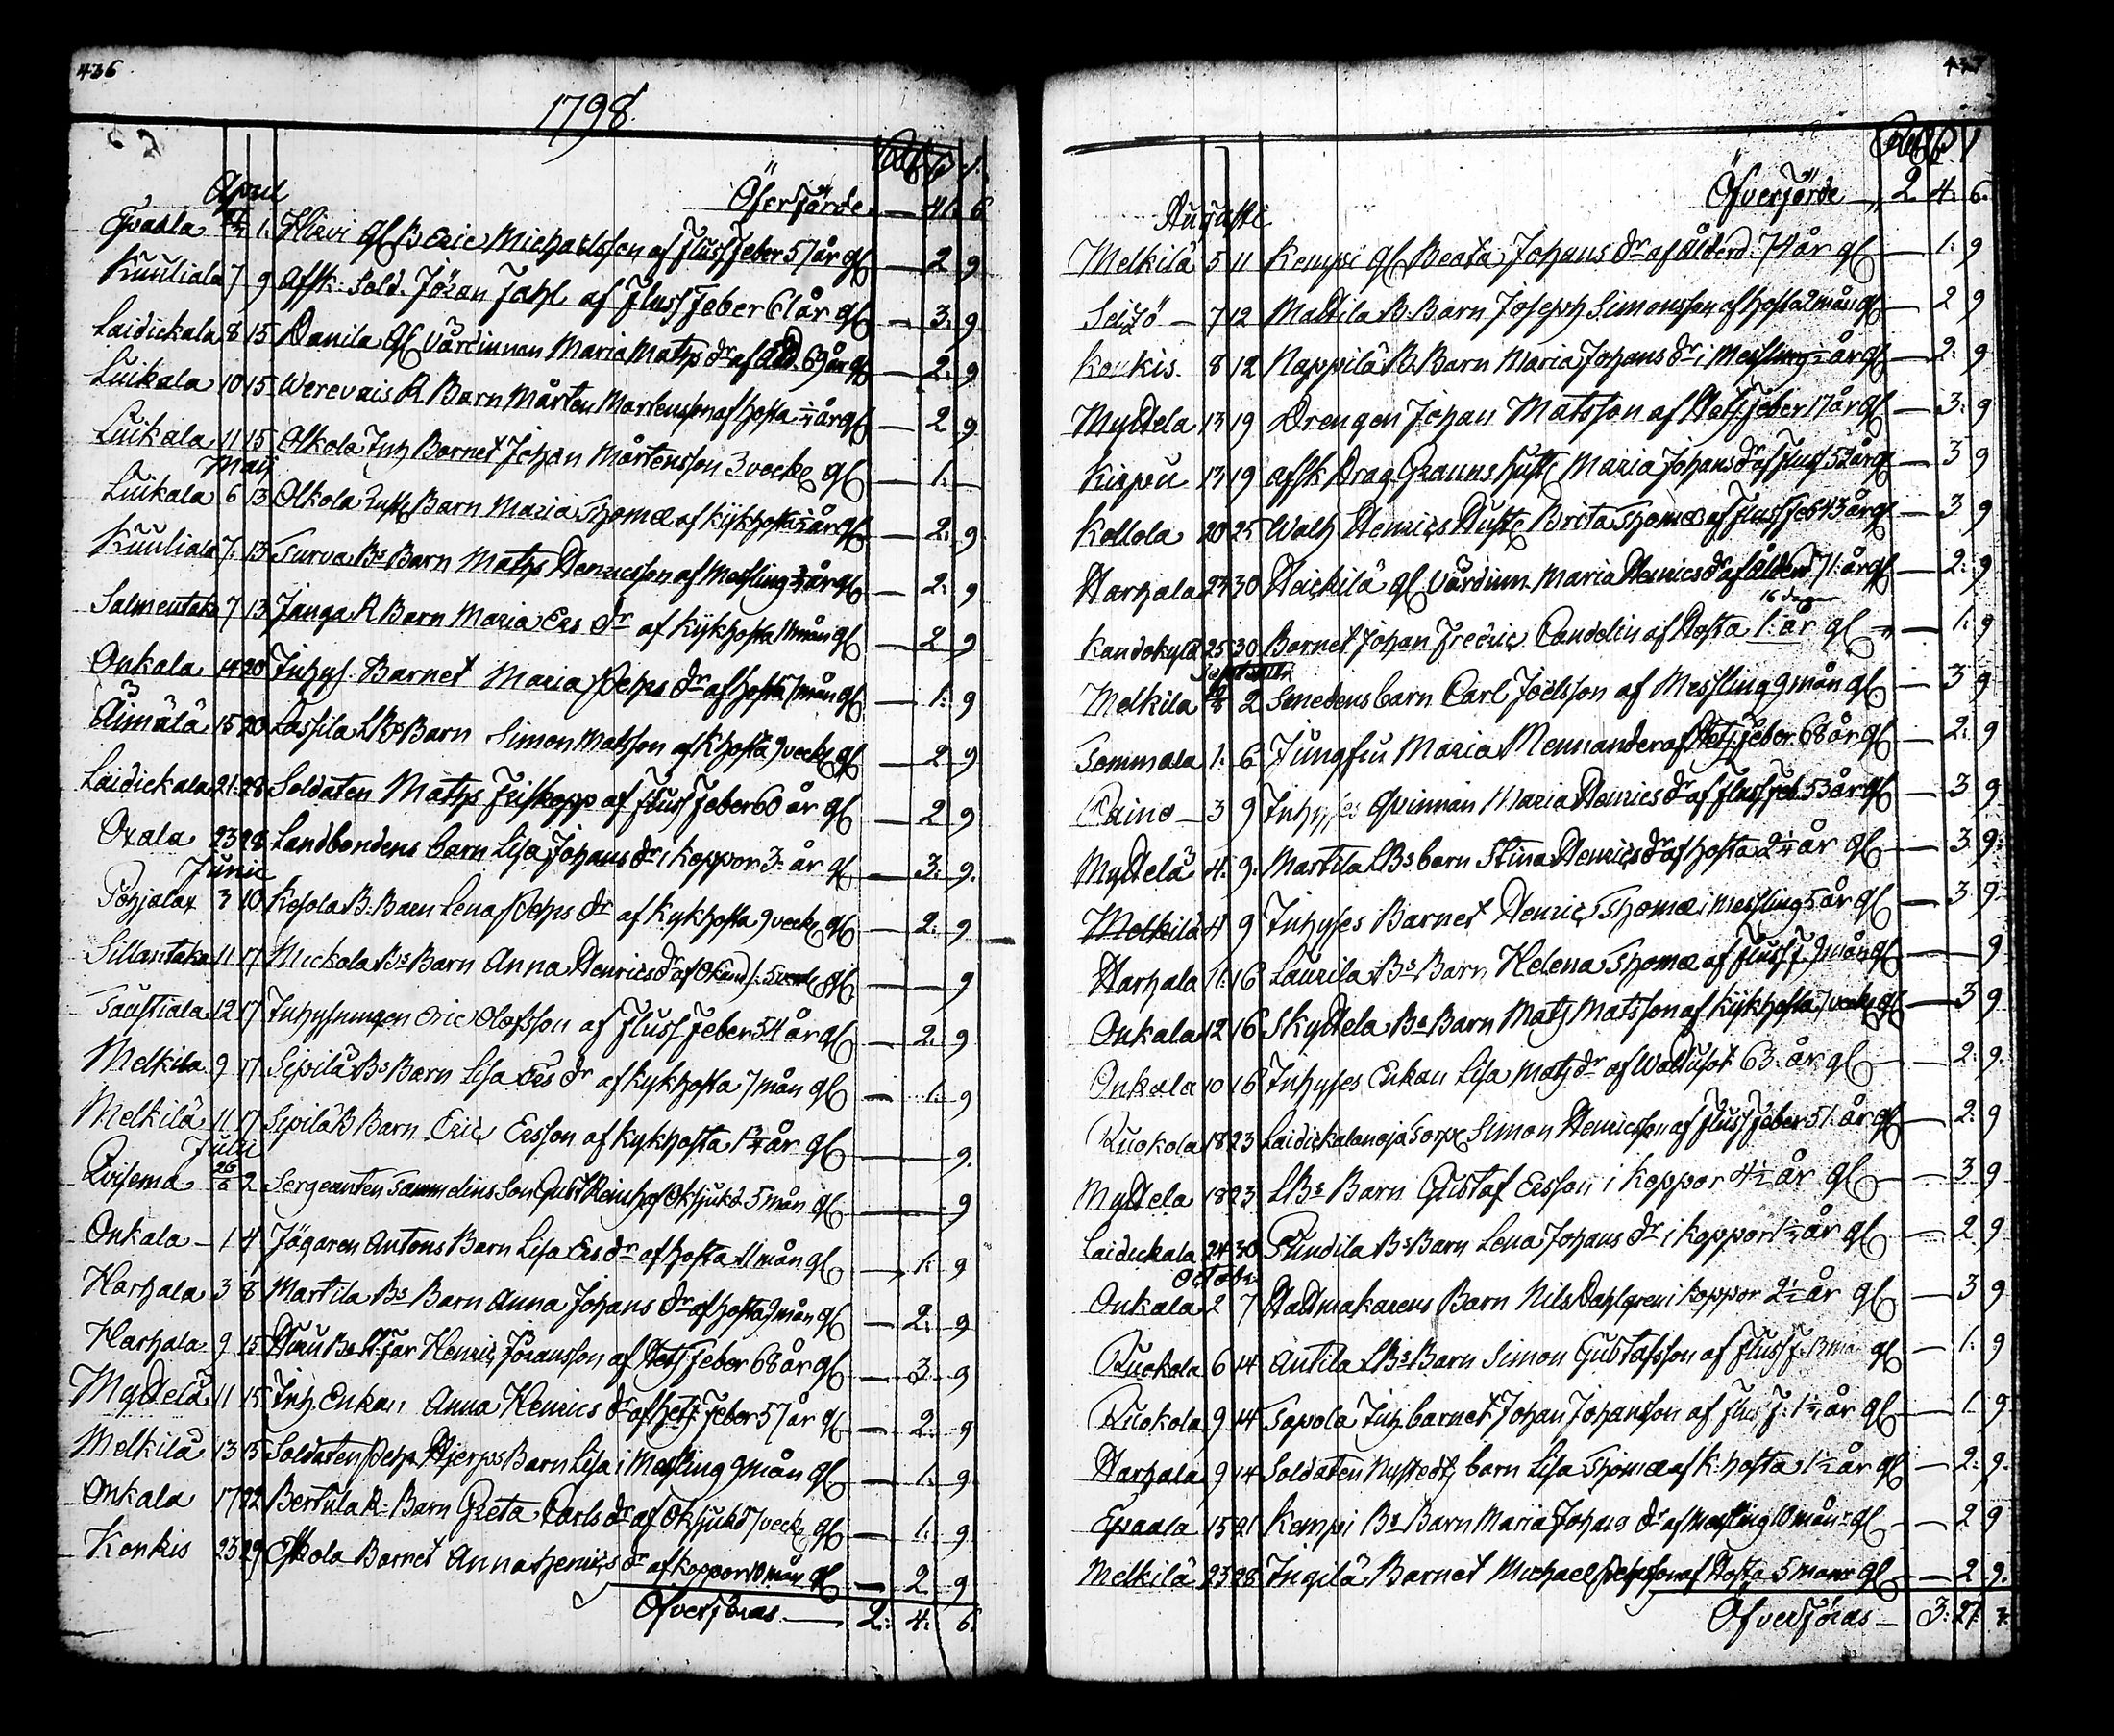 436
1798.
Rdr ß r.
Öferförde — 41. 6
April
Epaala 27/3 1. Hirvi gl B Eric Michaelsson af Flussfeber 57 år gl — 2 9
Kuuliala 7 9 Afsk: Sold. Jöran Fahl af Flussfeber 61 år gl — 3. 9
Laidickala 8 15 Danila gl Värdinnan Maria Maths dr af åld. 69 år gl — 2. 9
Luikala 10 15 Werevais R Barn Mårten Martensson af hosta ½ år gl — 2 9
Luikala 11 15 Olkola Inh Barnet Johan Mårtensson 3 veck gl — 1. —
Maij
Luikala 6 13 Olkola Barn Maria Thomæ af Kijkhosta år gl — 2. 9
Kuuliala 7. 13 Turva Bs Barn Maths Henricsson af Messling år gl — 2. 9
Salmentaka 7 13 Janga R Barn Maria Ers dr af Kijkhosta 11 mån gl — 2 9
Onkala 14 20 Inhys. Barnet Maria Pehrs dr af hosta 7 mån gl — 1. 9
Äimälä 15 20 Lassila LBs Barn Simon Matsson af Khosta 9 veck gl — 2 9
Laidickala 21. 28 Soldaten Maths Friskopp af Flussfeber 60 år gl — 2 9
Oxala 23 28 Landbondens barn Lisa Johans dr i Koppor 3. år gl — 3. 9.
Junii
Pohjalax 3 10 Kosola B. Barn Lena Pehrs dr af Kykhosta 9 veck gl — 2. 9
Sillantaka 11 17 Mickola Bs Barn Anna Henrics dr af Okänd s. 5 veck gl — — 9
Saustiala 12 17 Inhysningen Eric Olofsson af Flussfeber 54 år gl — 2. 9
Melkila 9 17 Sipilä Bs Barn Lisa Ers dr af Kykhosta 7 mån gl — 1. 9
Melkilä 11 17 Sipilä B Barn Eric Ersson af Kykhosta 1¾ år gl — — 9.
Julii
Qvisema 26/6 2 Sergeanten Sammelins son Gust Reinh af Oksjukd 5 mån gl — — 9
Onkala — 1 4 Jägaren Antons Barn Lisa Ers dr af hosta 11 mån gl — 1. 9
Harhala 3 8 Martila Bs Barn Anna Johans dr af hosta 9 mån gl — 2. 9
Harhala 9 15 Bs Far Henric Jöransson af Hetsfeber 68 år gl — 3 9
Myttelä 11 15 Inh Enkan Anna Henrics dr af hets feber 57 år gl — 2. 9
Melkilä 13 15 Soldaten Pehr Hjerps Barn Lisa i Messling 9 mån gl — 1. 9
Onkala 17 22 Bertula R. Barn Greta Carls dr af Oksjukd 7 veck gl — 1. 9
Konkis 23 29 Eskola Barnet Anna Henrics dr af Koppor 10 mån gl — 2 9
Öfverföras — 2: 4. 6.
437
Rdr ß r
Öfverförde — 2. 4. 6.
Augusti
Melkilä 5 11 Kempi gl Beata Johans dr af ålderd. 74 år gl — 1. 9
Seijö — 7 12 Mattila B. Barn Joseph Simonsson af hosta 2 mån gl — 2 9
Konkis. 8 12 Nappilä B. Barn Maria Johans dr i Messling ½ år gl — 2. 9
Myttela 13 19 Drengen Johan Matsson af Hetsfeber 17 år gl — 3. 9
Kirpu 13 19 Afsk Drag. Granns hust. Maria Johans dr af Flusf 52 år gl — 3 9
Kollola 20 25 Walh Henrics Hustr Brita Thomæ af Flussfeb 43 år gl — 3 9
Harhala 24 30 Heickilä gl Värdinn. Maria Henrics dr af ålderd 71. år gl — 2. 9
16 dagar
Kandokylä 25 30 Barnet Johan Fredric Candelin af Hosta 1. år gl — 1. 9
September
Melkila 2 Smedens barn Carl Joelsson af Messling 9 mån gl — 3 9
Sommala 1. 6 Jungfru Maria Mennander af Hets feber. 68 år gl — 2. 9
Raino — 3 9 Inhyses Qvinnan Maria Henrics dr af Flusfeb. 53 år gl — 3 9
Myttelä 4. 9. Martila LBs barn Stina Henrics dr af hosta 2½ år gl — 3 9.
Melkilä 4 9 Inhyses Barnet Henric Thomæ i Messling 5 år gl — 3 9
Harhala 11. 16 Laurila Bs Barn Helena Thomæ af Fluss f. 9 mån gl — — 9
Onkala 12 16 Skyttela Bs Barn Mats Matsson af Kijkhosta 7 veck gl — 3 9
Onkala 10 16 Inhyses Enkan Lisa Mats dr af Wattusot 63. år gl — 2. 9.
Ruokola 18 23 Laidickalanoja Torp Simon Henricsson af Flussfeber 51. år gl — 2. 9
Myttela 18 23 LBs Barn Gustaf Ersson i Koppor 4½ år gl — 3 9
Laidickala 24 30 Pundila Bs Barn Lena Johans dr i Koppor 1½ år gl — 2 9
October
Onkala 2 7 Hattmakarens Barn Nils Dahlgren i Koppor 2½ år gl — 3 9
Ruokola 6 14 Antila LBs Barn Simon Gustafsson af Fluss f. 3 må gl — 1. 9
Ruokola 9 14 Sapola Inh barnet Johan Johansson af Flus f. 1½ år gl — 1. 9
Harhala 9 14 Soldaten Nystedts barn Lisa Thomæ af K: hosta 1½ år gl — 2. 9.
Epaala 15 21 Kempi Bs Barn Maria Johans dr af Messling 10 mån gl — 2 9
Melkilä 23 28 Ingilä Barnet Michael Pehrsson af Hosta 5 mån gl — 2 9.
Öfverföras — 3: 27: 3.